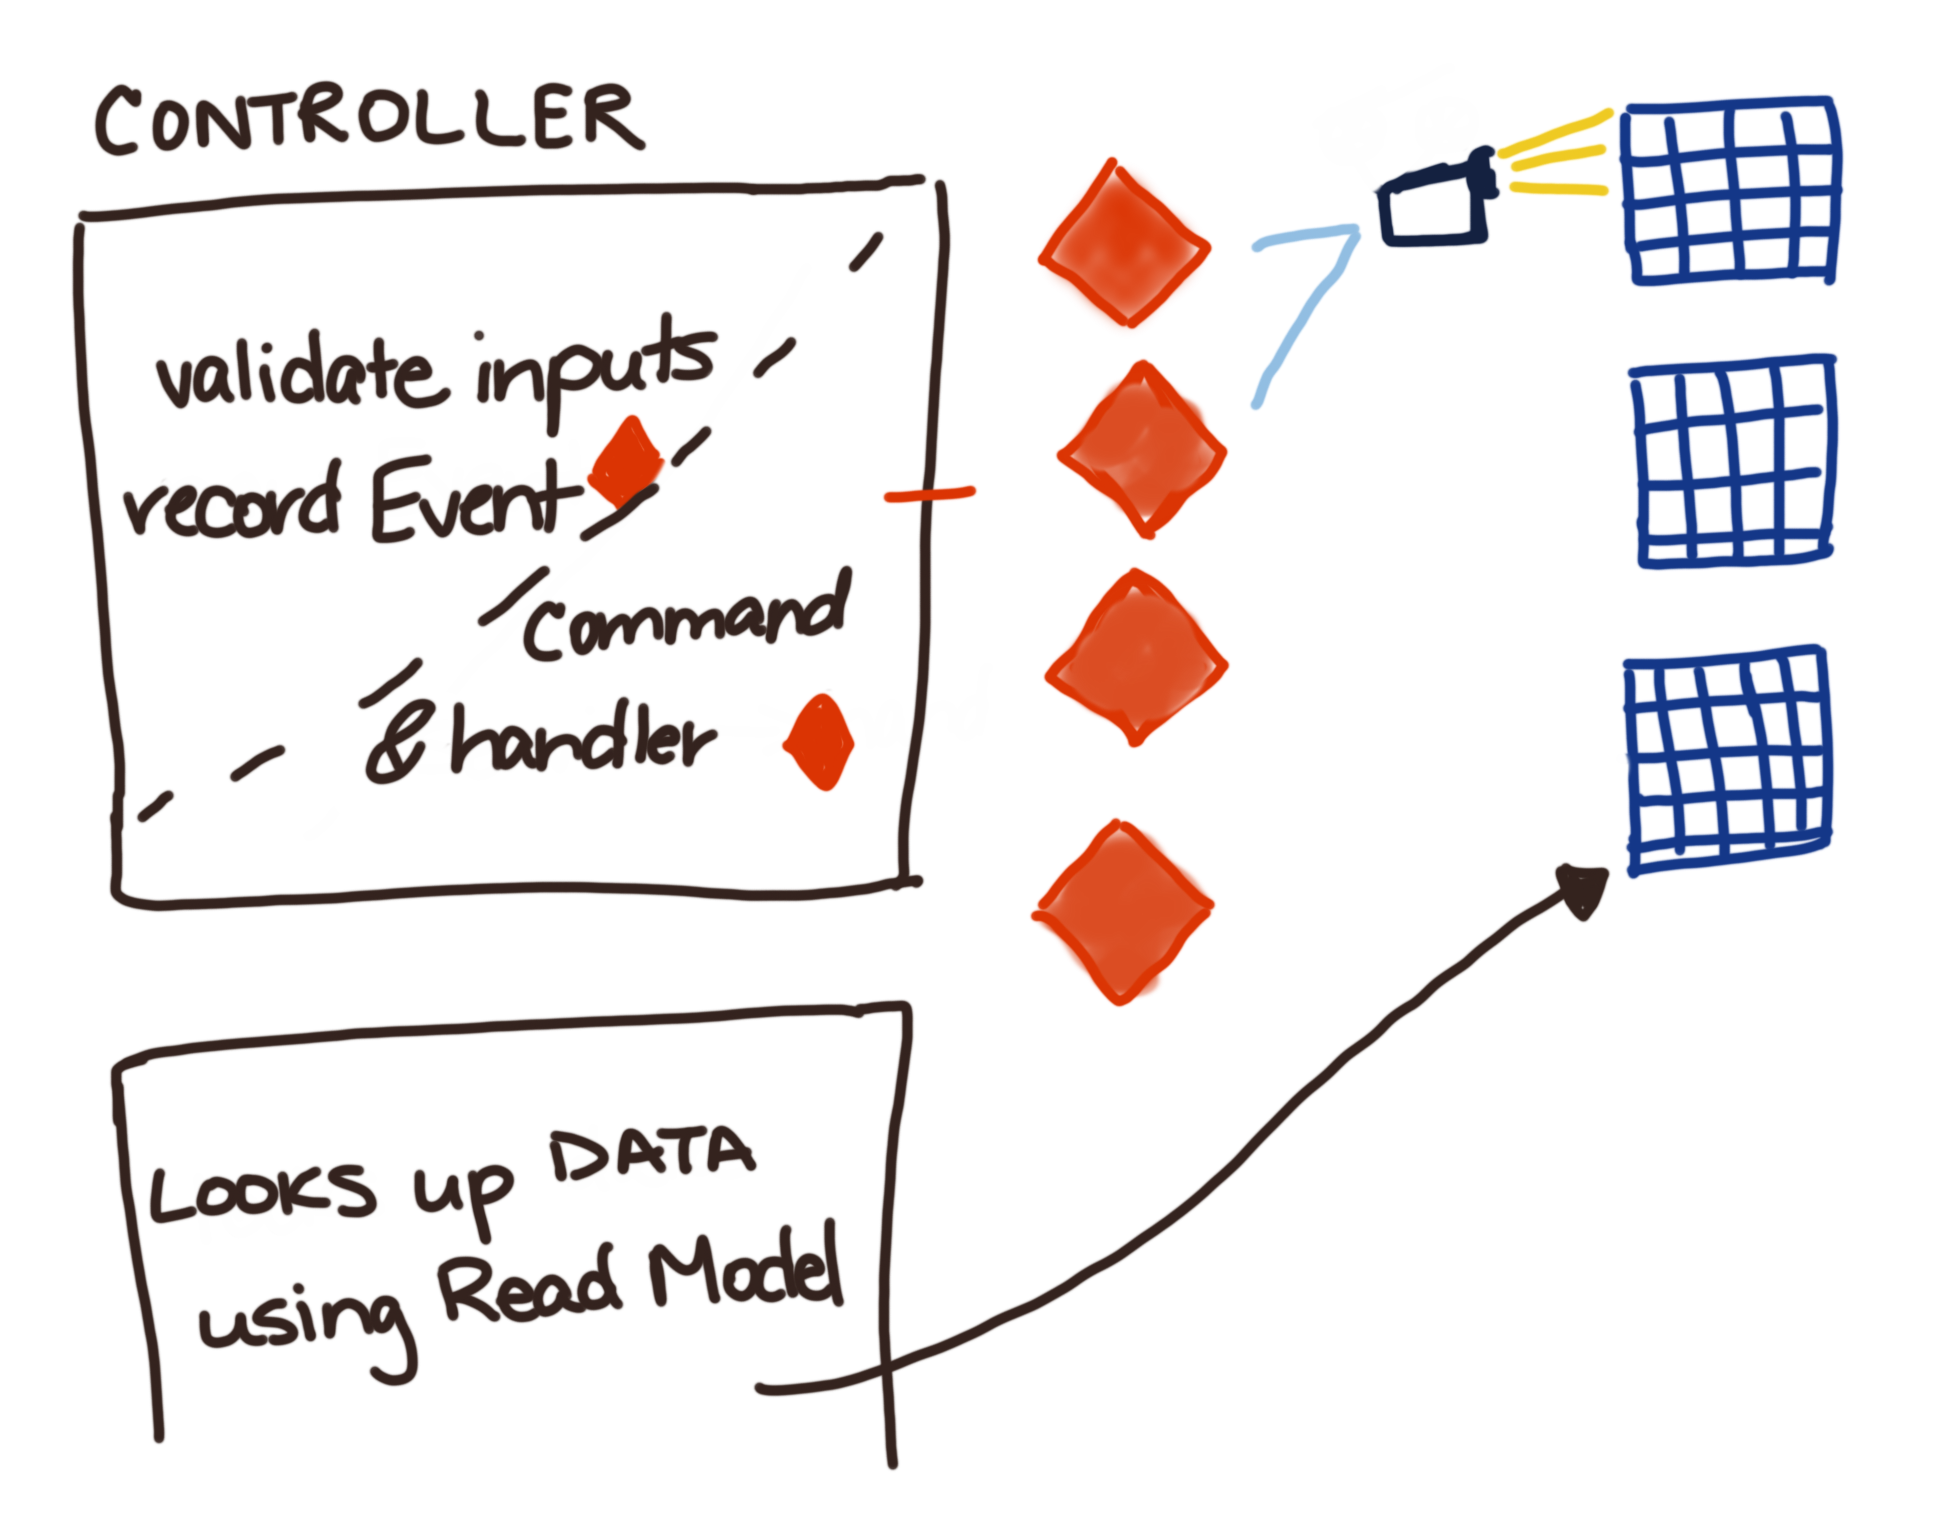 CONTROLLER
validate inputs
record Event
Command
& handler
Looks up DATA
using Read Model